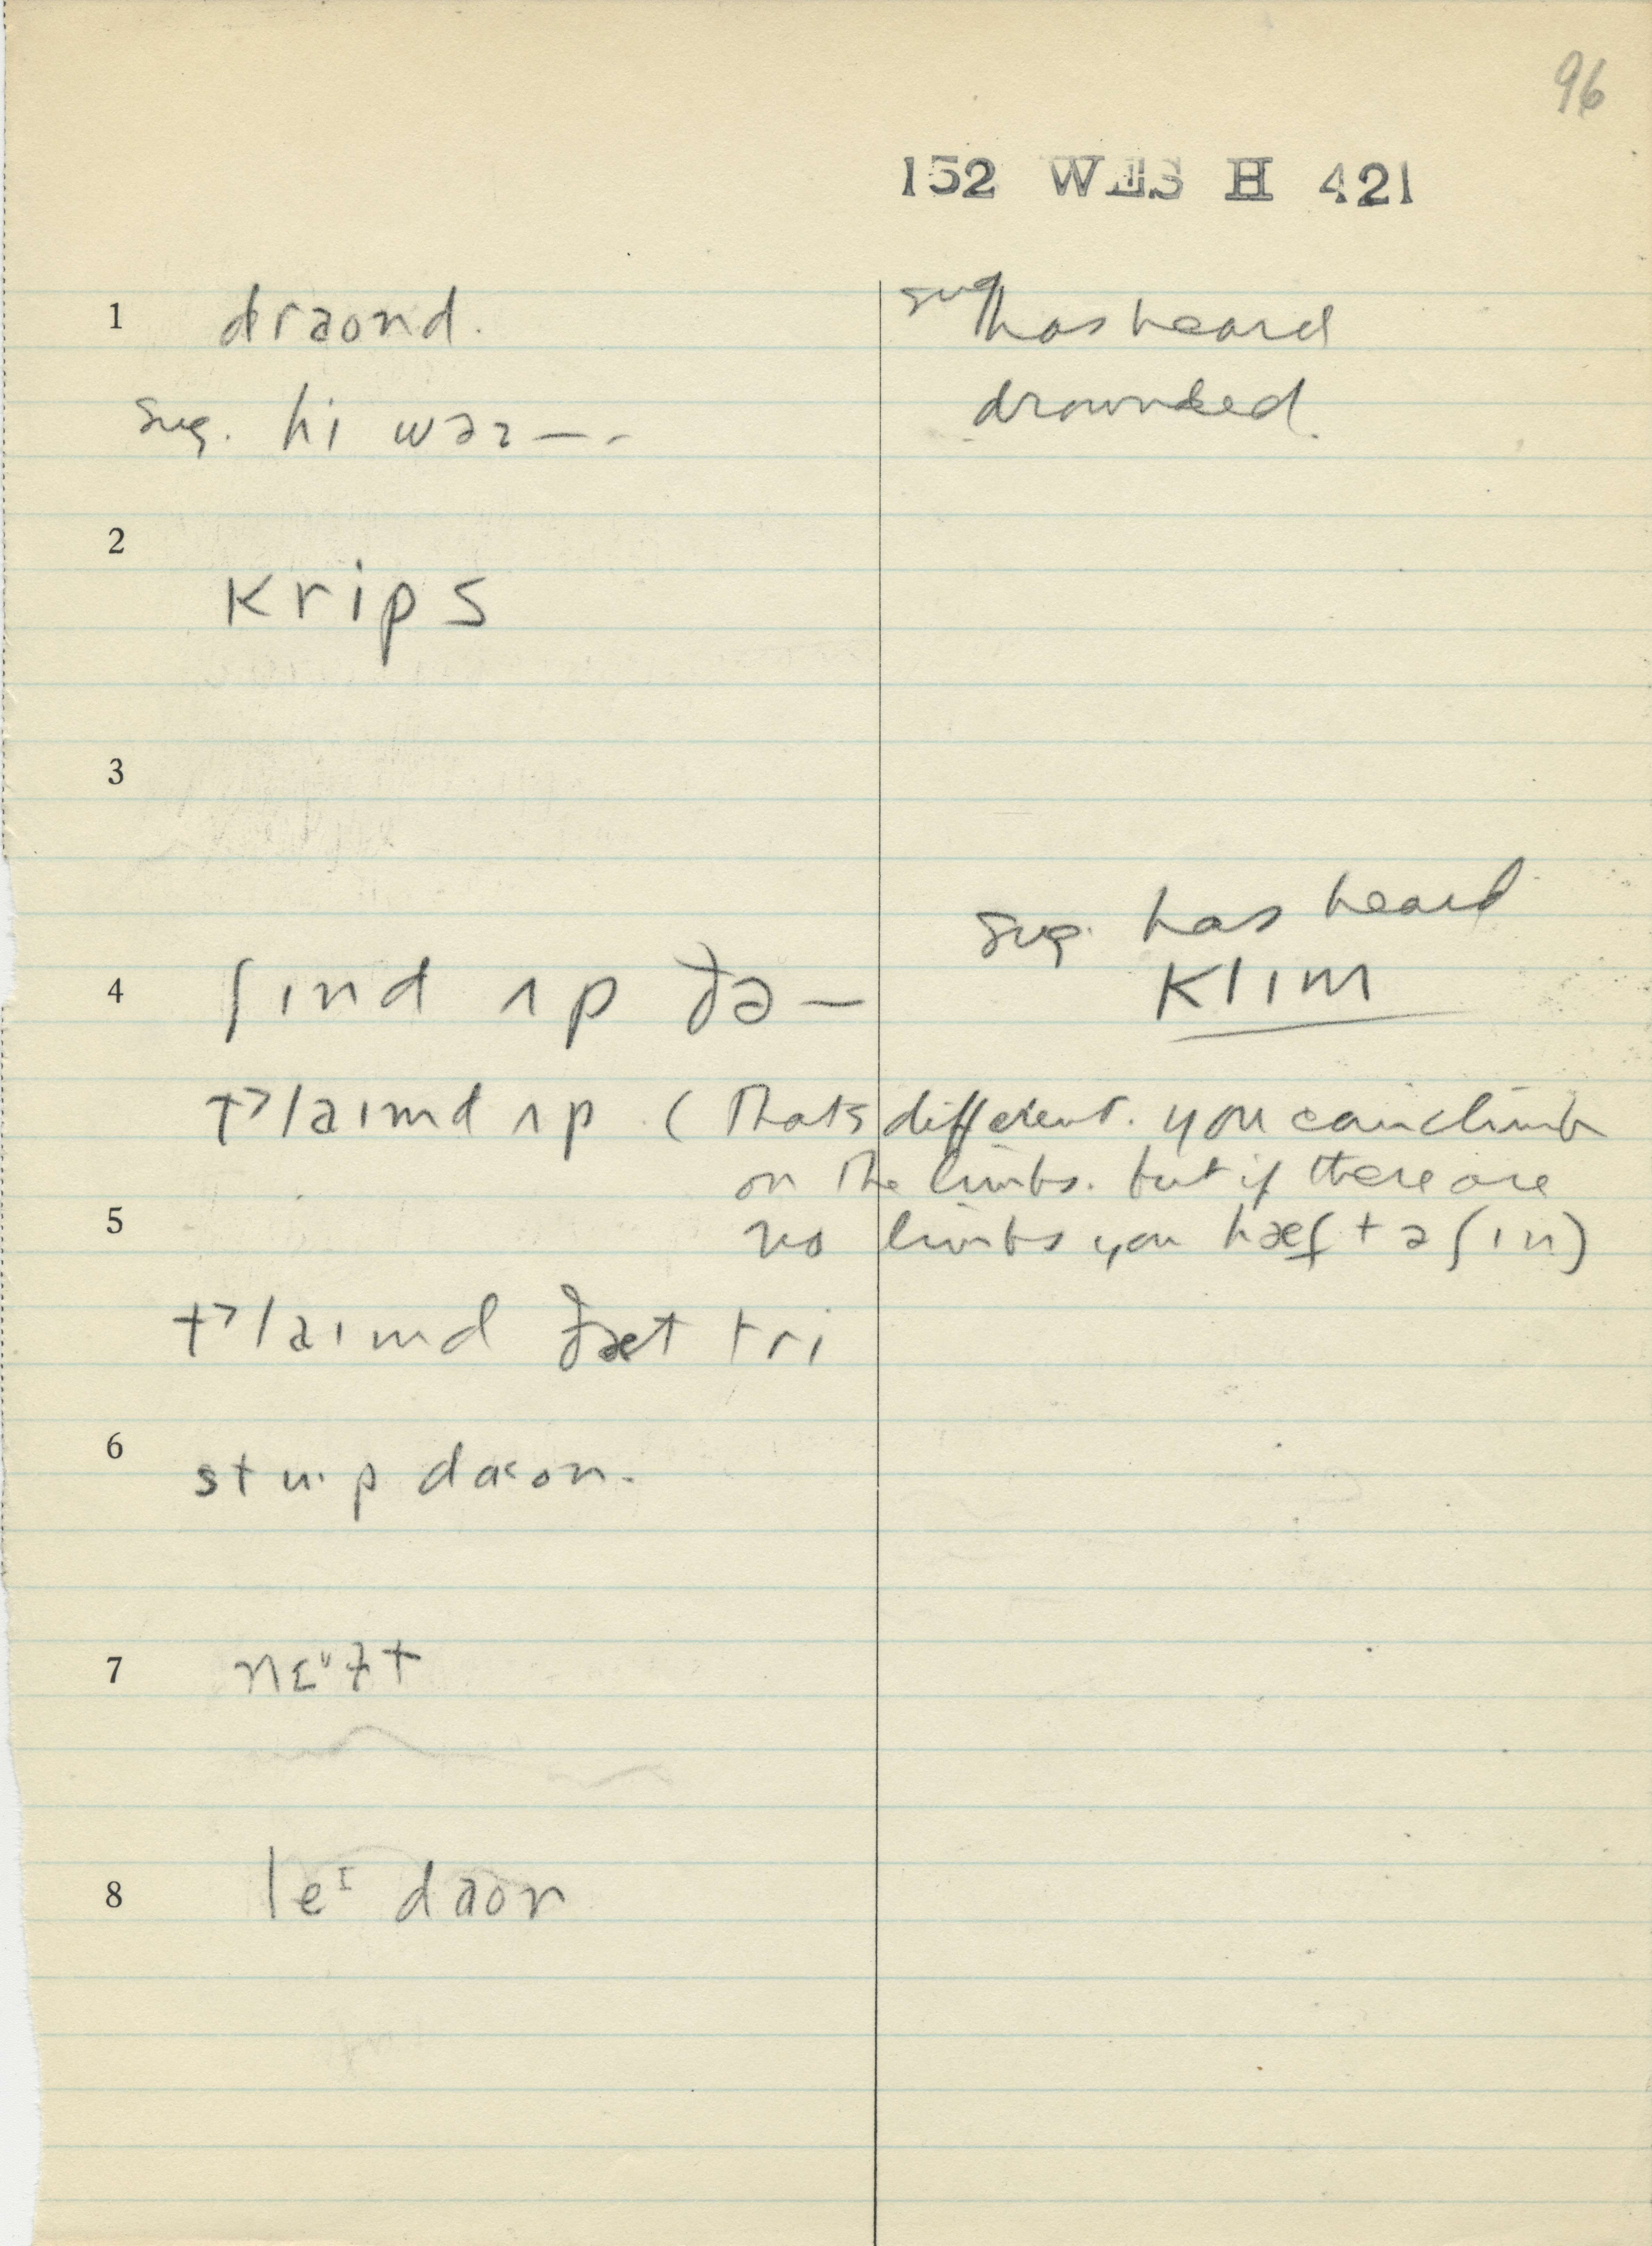 96
152 WES H 421
1 draond. sug has heard
sug. hi wəz — - drownded.
2
krips
3
sug. has heard
klɪm
4 ʃɪnd ʌp ðə —
t>laɪmd ʌp. (That's different. you can climb
on the limbs. but if there are
5 no limbs you hæf tə ʃɪn)
t>laɪmd ðæt tri
6 stu·p daon.
7
8 leᴵ daon